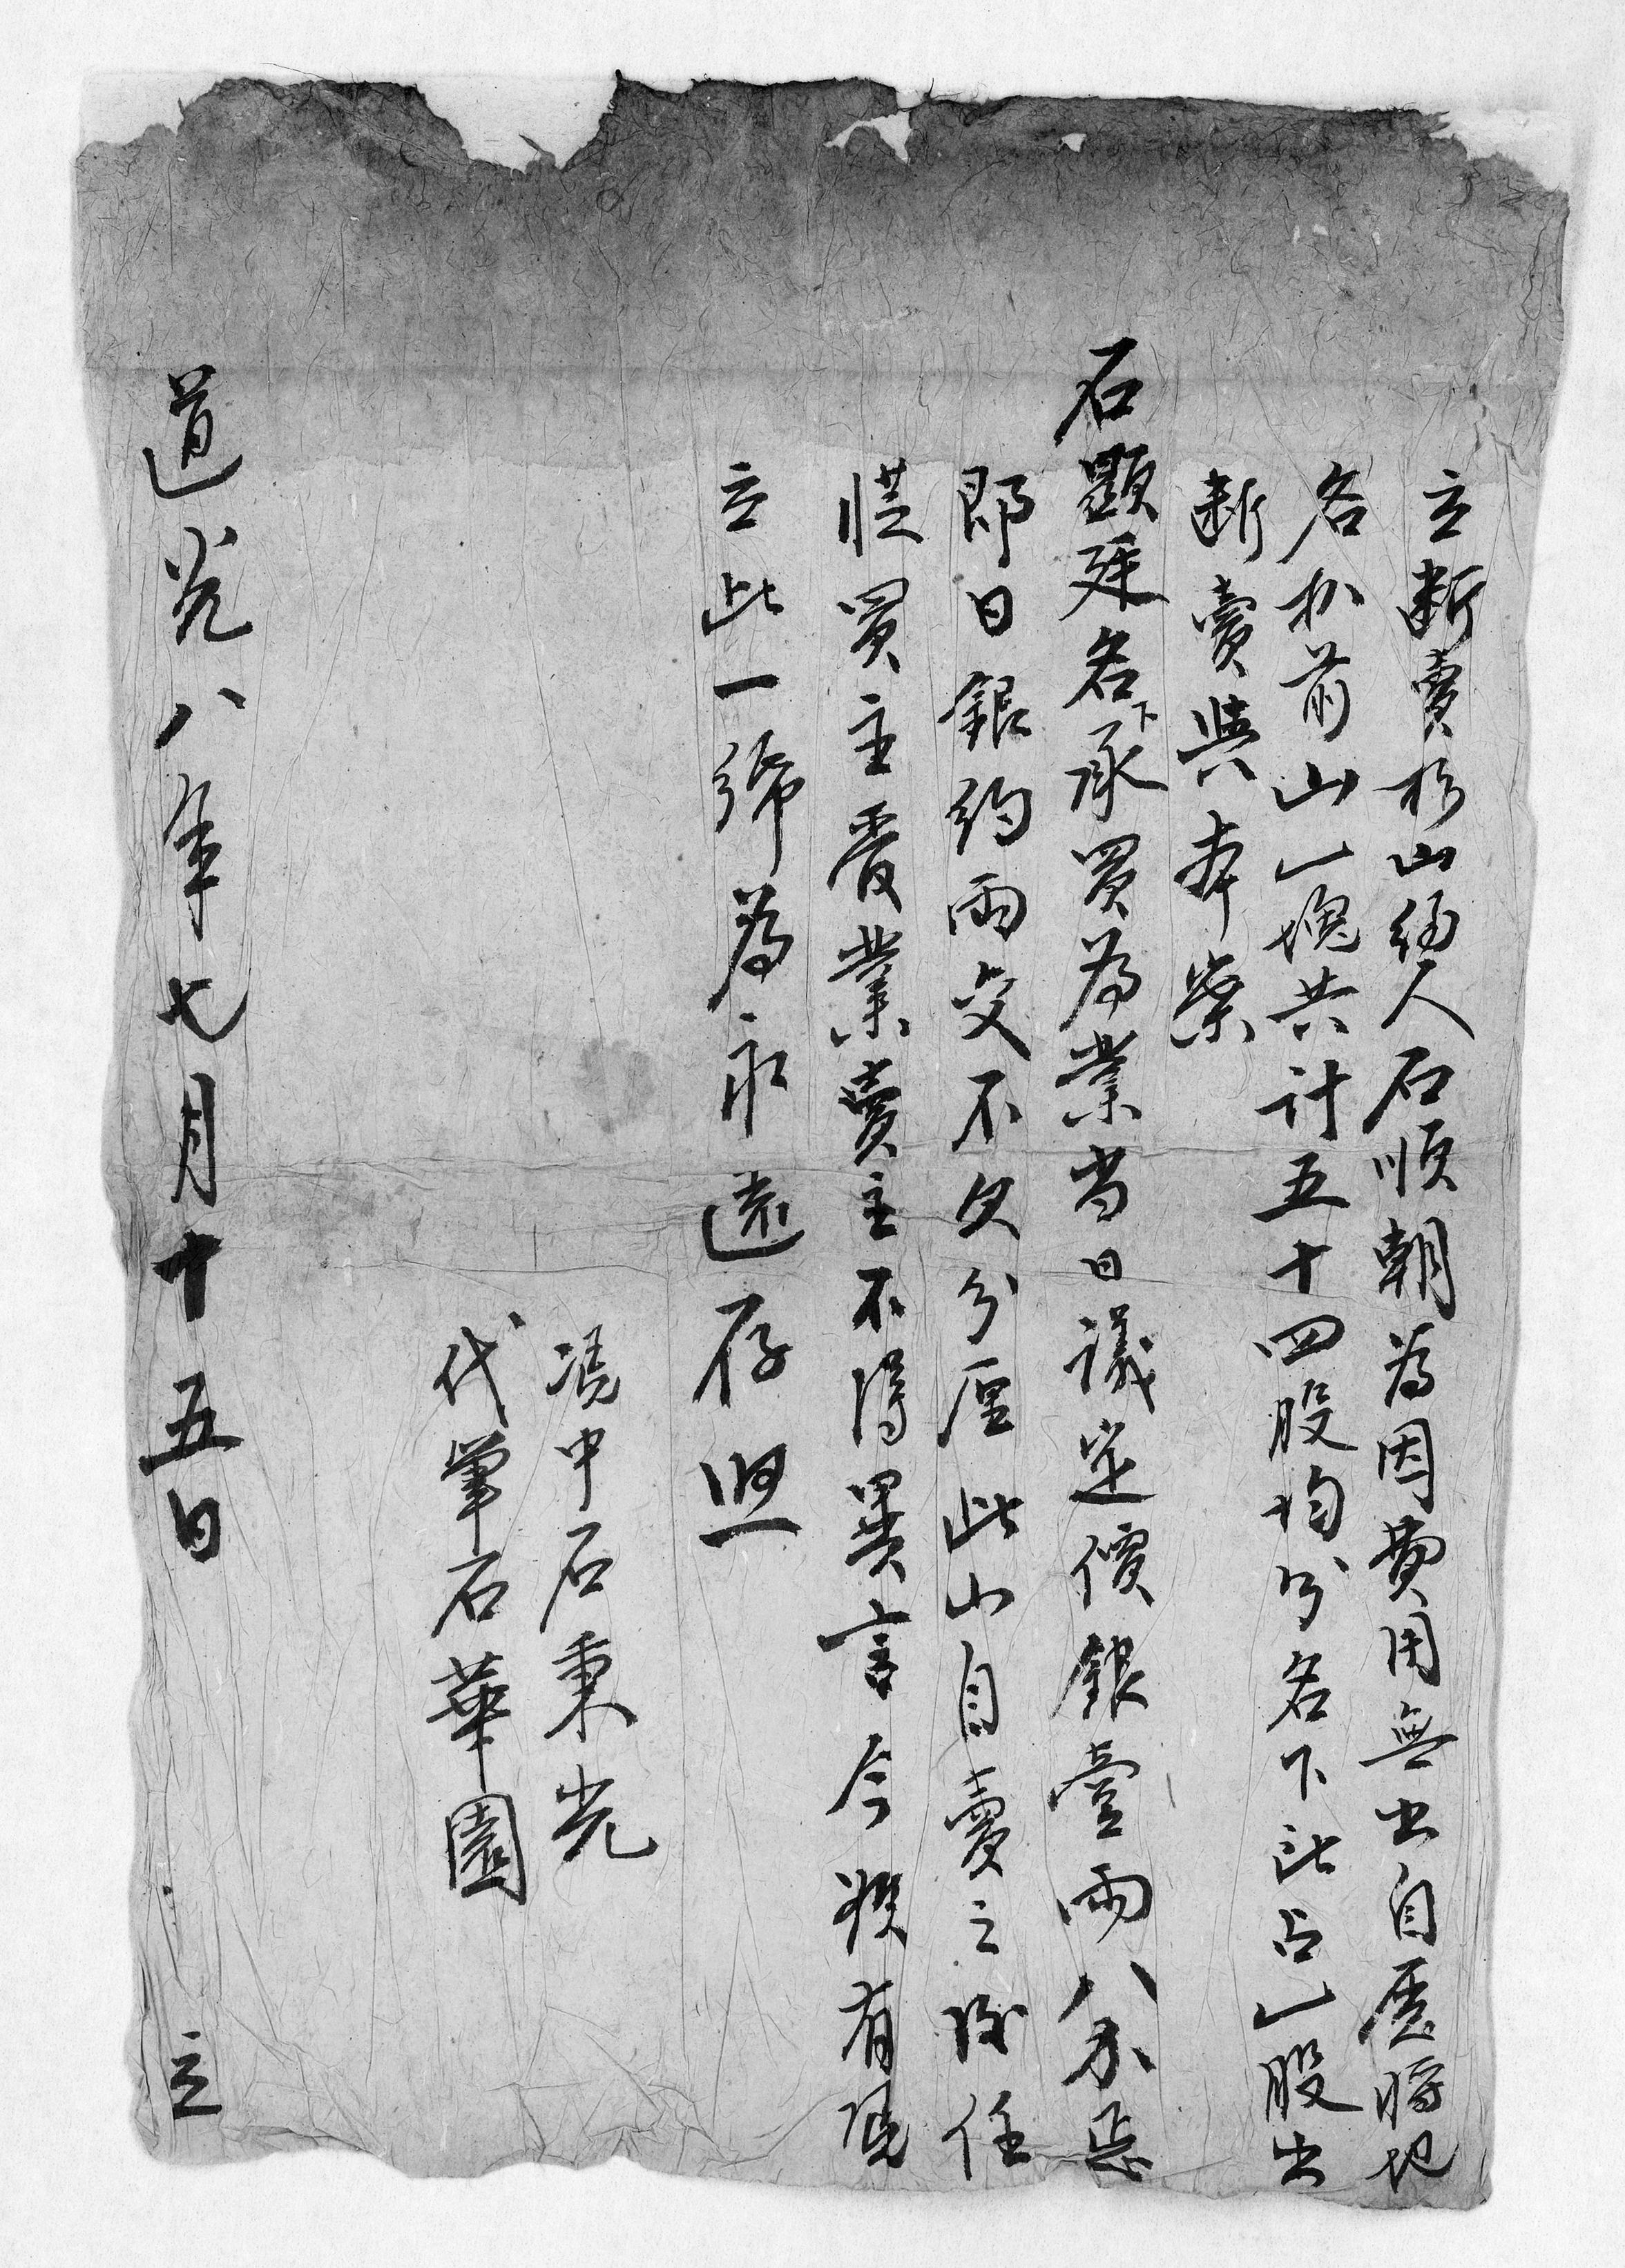 立斷賣杉山約人石順朝為因費用無出自愿將地
名扒前山一塊共計五十四股均分名下此占一股出
斷賣與本寨
石顯廷名下承買為業當日議定價銀壹兩八分正
即日銀約兩交不欠分厘此山自賣之後任
憑買主管業賣主不得異言今欲有憑
立此一紙為永遠存照
憑中石秉光
代筆石華園
道光八年七月十五日 立